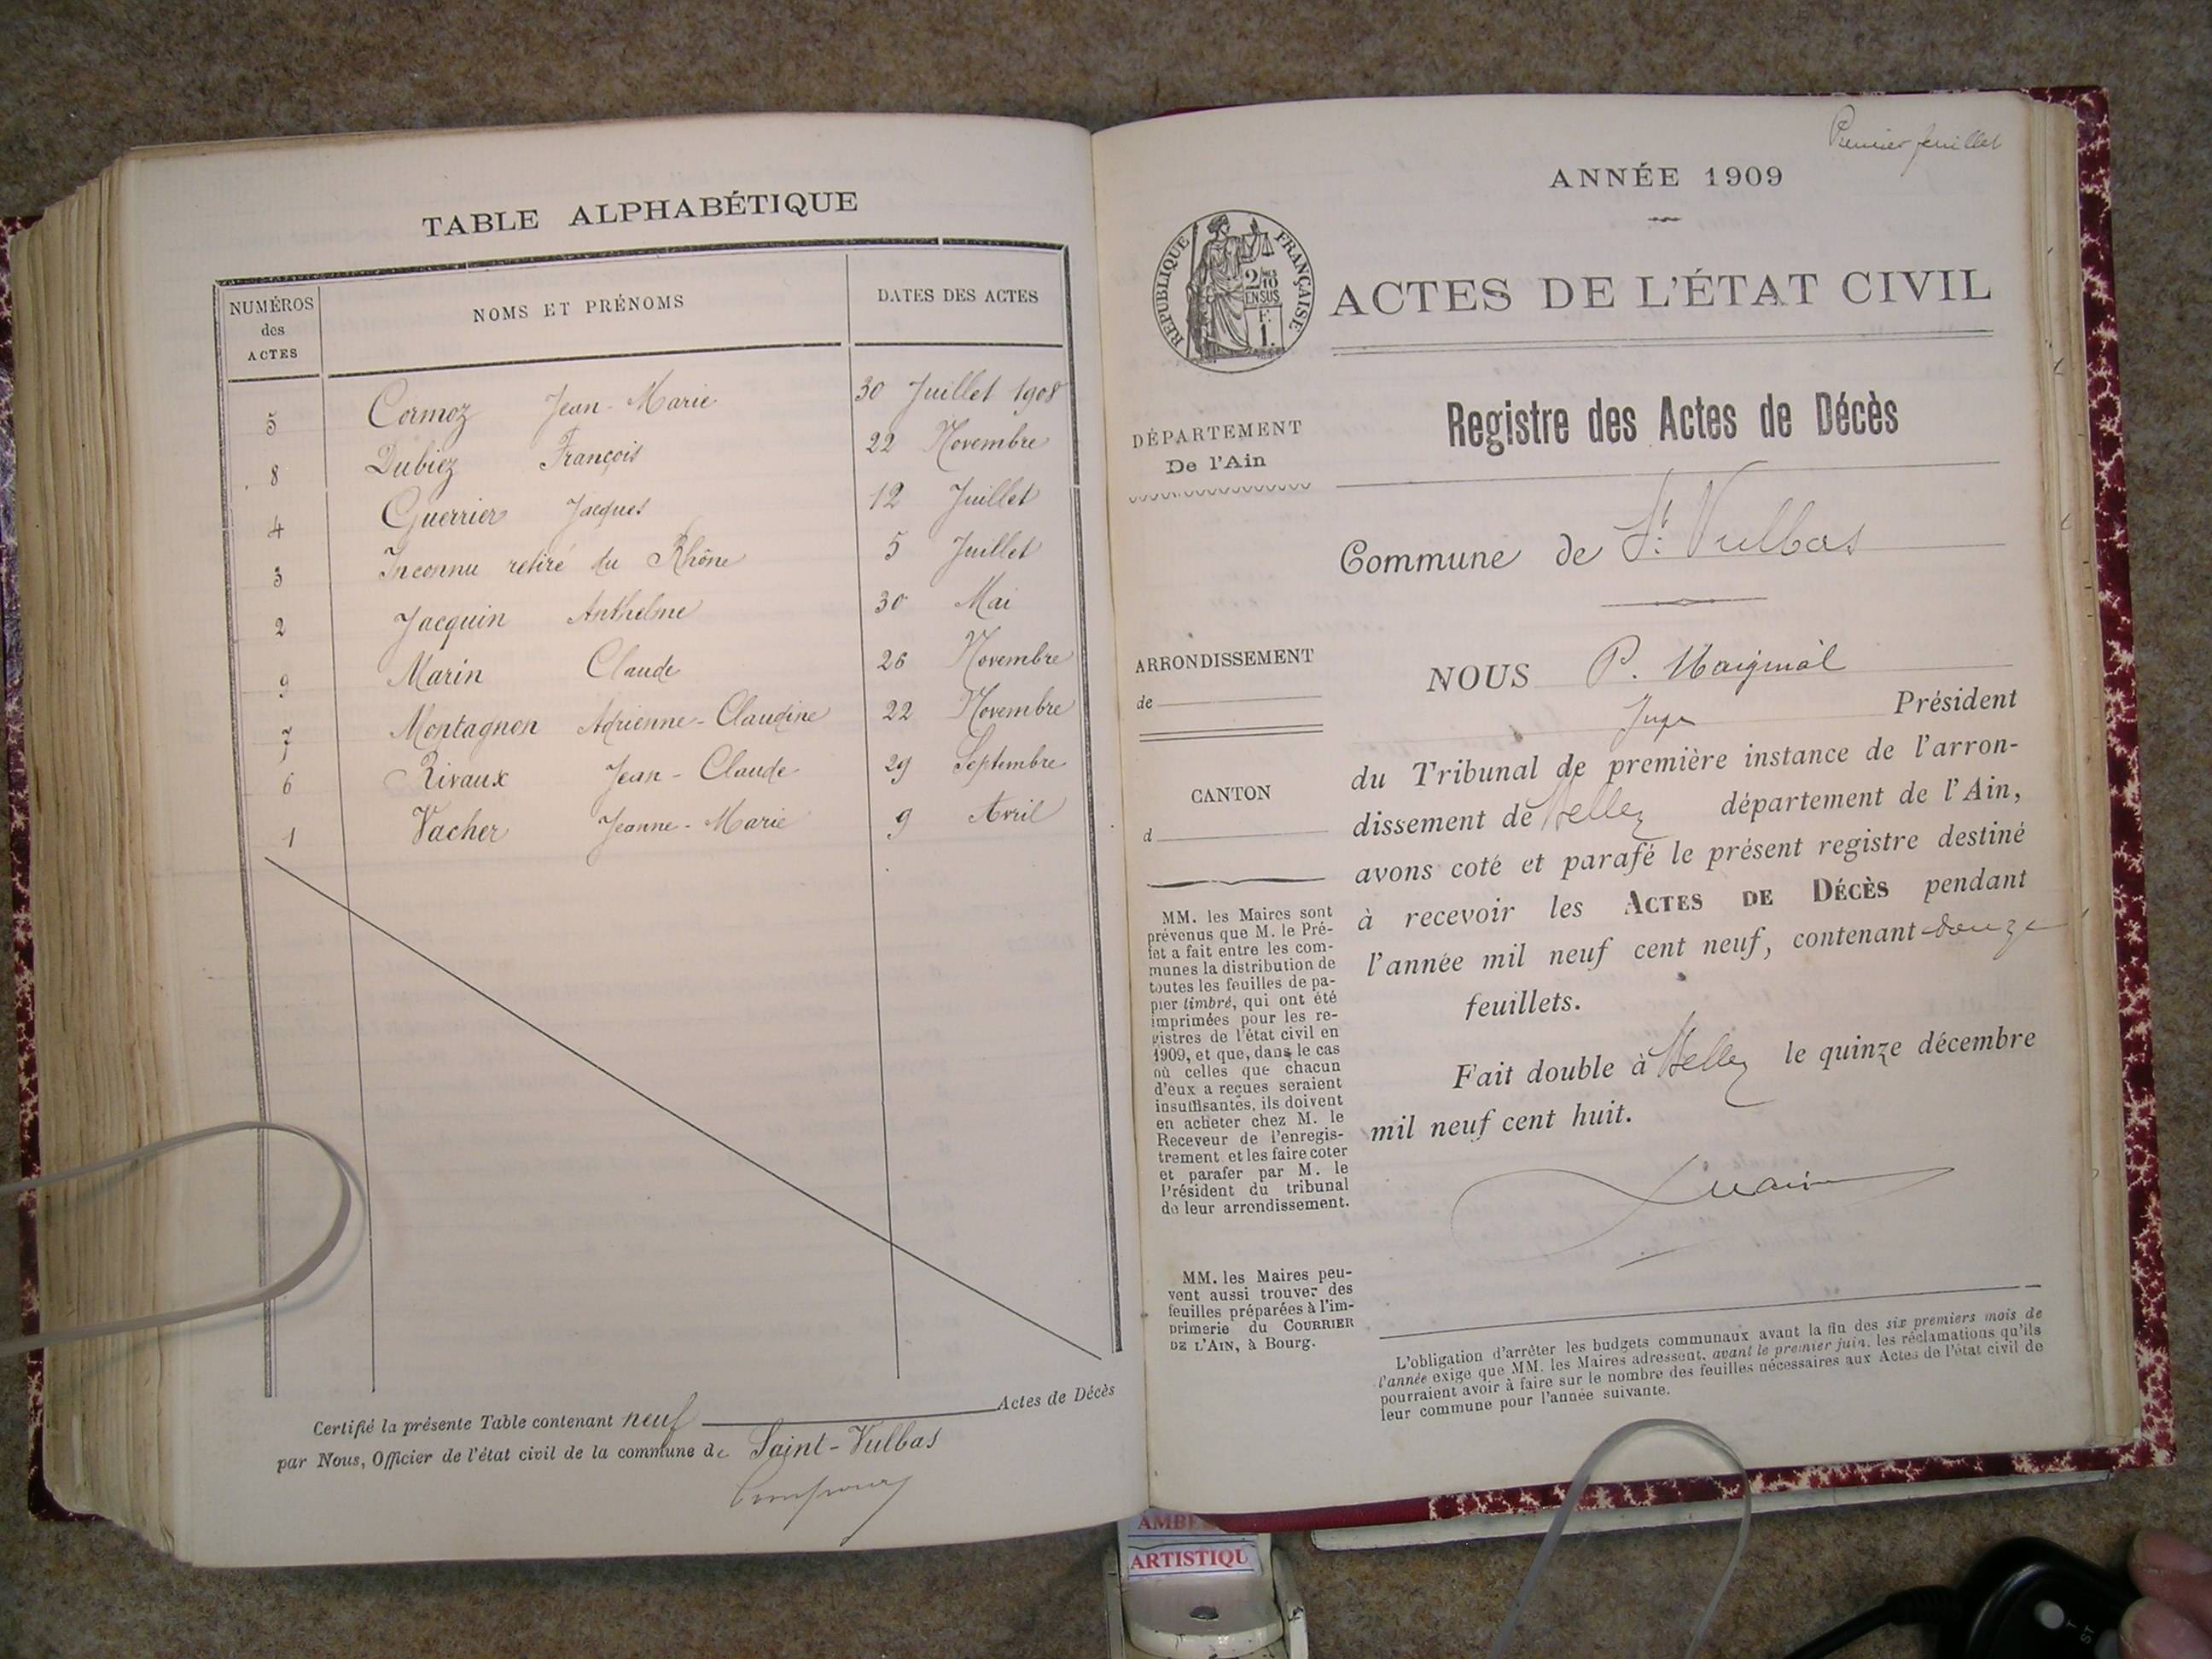 TABLE ALPHABÉTIQUE
NUMÉROS des ACTES NOMS ET PRÉNOMS DATES DES ACTES
5 Cormoz Jean-Marie 30 Juillet 1908
8 Dubiez François 22 Novembre
4 Guerrier Jacques 12 Juillet
3 Inconnu retiré du Rhône 5 Juillet
2 Jacquin Anthelme 30 Mai
9 Marin Claude 26 Novembre
7 Montagnon Adrienne-Claudine 22 Novembre
6 Rivaux Jean-Claude 29 Septembre
1 Vacher Jeanne-Marie 9 Avril
Certifié la présente Table contenant neuf Actes de Décès
par Nous, Officier de l'état civil de la commune de Saint-Vulbas
Premier feuillet
ANNÉE 1909
RÉPUBLIQUE FRANÇAISE
2/10 EN SUS
F. 1.
ACTES DE L'ÉTAT CIVIL
Registre des Actes de Décès
DÉPARTEMENT
De l'Ain
Commune de St Vulbas
ARRONDISSEMENT
de
CANTON
d
MM. les Maires sont
prévenus que M. le Pré-
fet a fait entre les com-
munes la distribution de
toutes les feuilles de pa-
pier timbré, qui ont été
imprimées pour les re-
gistres de l'état civil en
1909, et que, dans le cas
où celles que chacun
d'eux a reçues seraient
insuffisantes, ils doivent
en acheter chez M. le
Receveur de l'enregis-
trement et les faire coter
et parafer par M. le
Président du tribunal
de leur arrondissement.
MM. les Maires peu-
vent aussi trouver des
feuilles préparées à l'im-
primerie du COURRIER
DE L'AIN, à Bourg.
NOUS P.
Juge Président
du Tribunal de première instance de l'arron-
dissement de Belley département de l'Ain,
avons coté et parafé le présent registre destiné
à recevoir les ACTES DE DÉCÈS pendant
l'année mil neuf cent neuf, contenant douze
feuillets.
Fait double à Belley le quinze décembre
mil neuf cent huit.
L'obligation d'arrêter les budgets communaux avant la fin des six premiers mois de
l'année exige que MM. les Maires adressent, avant le premier juin, les réclamations qu'ils
pourraient avoir à faire sur le nombre des feuilles nécessaires aux Actes de l'état civil de
leur commune pour l'année suivante.
ARTISTIQU
T
ST